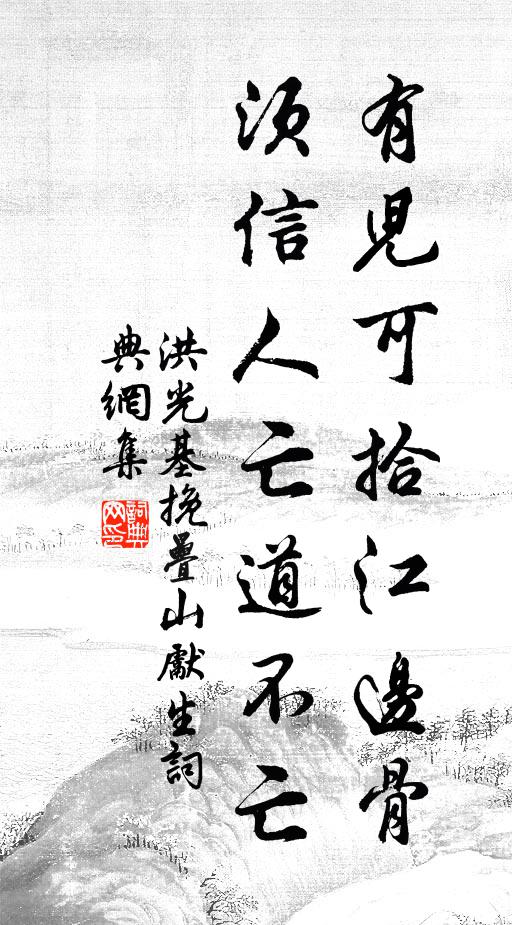 有児可拾江邊骨
須信人亡道不亡
洪光基挽疊山獻生詞
典網集
詞典
网印